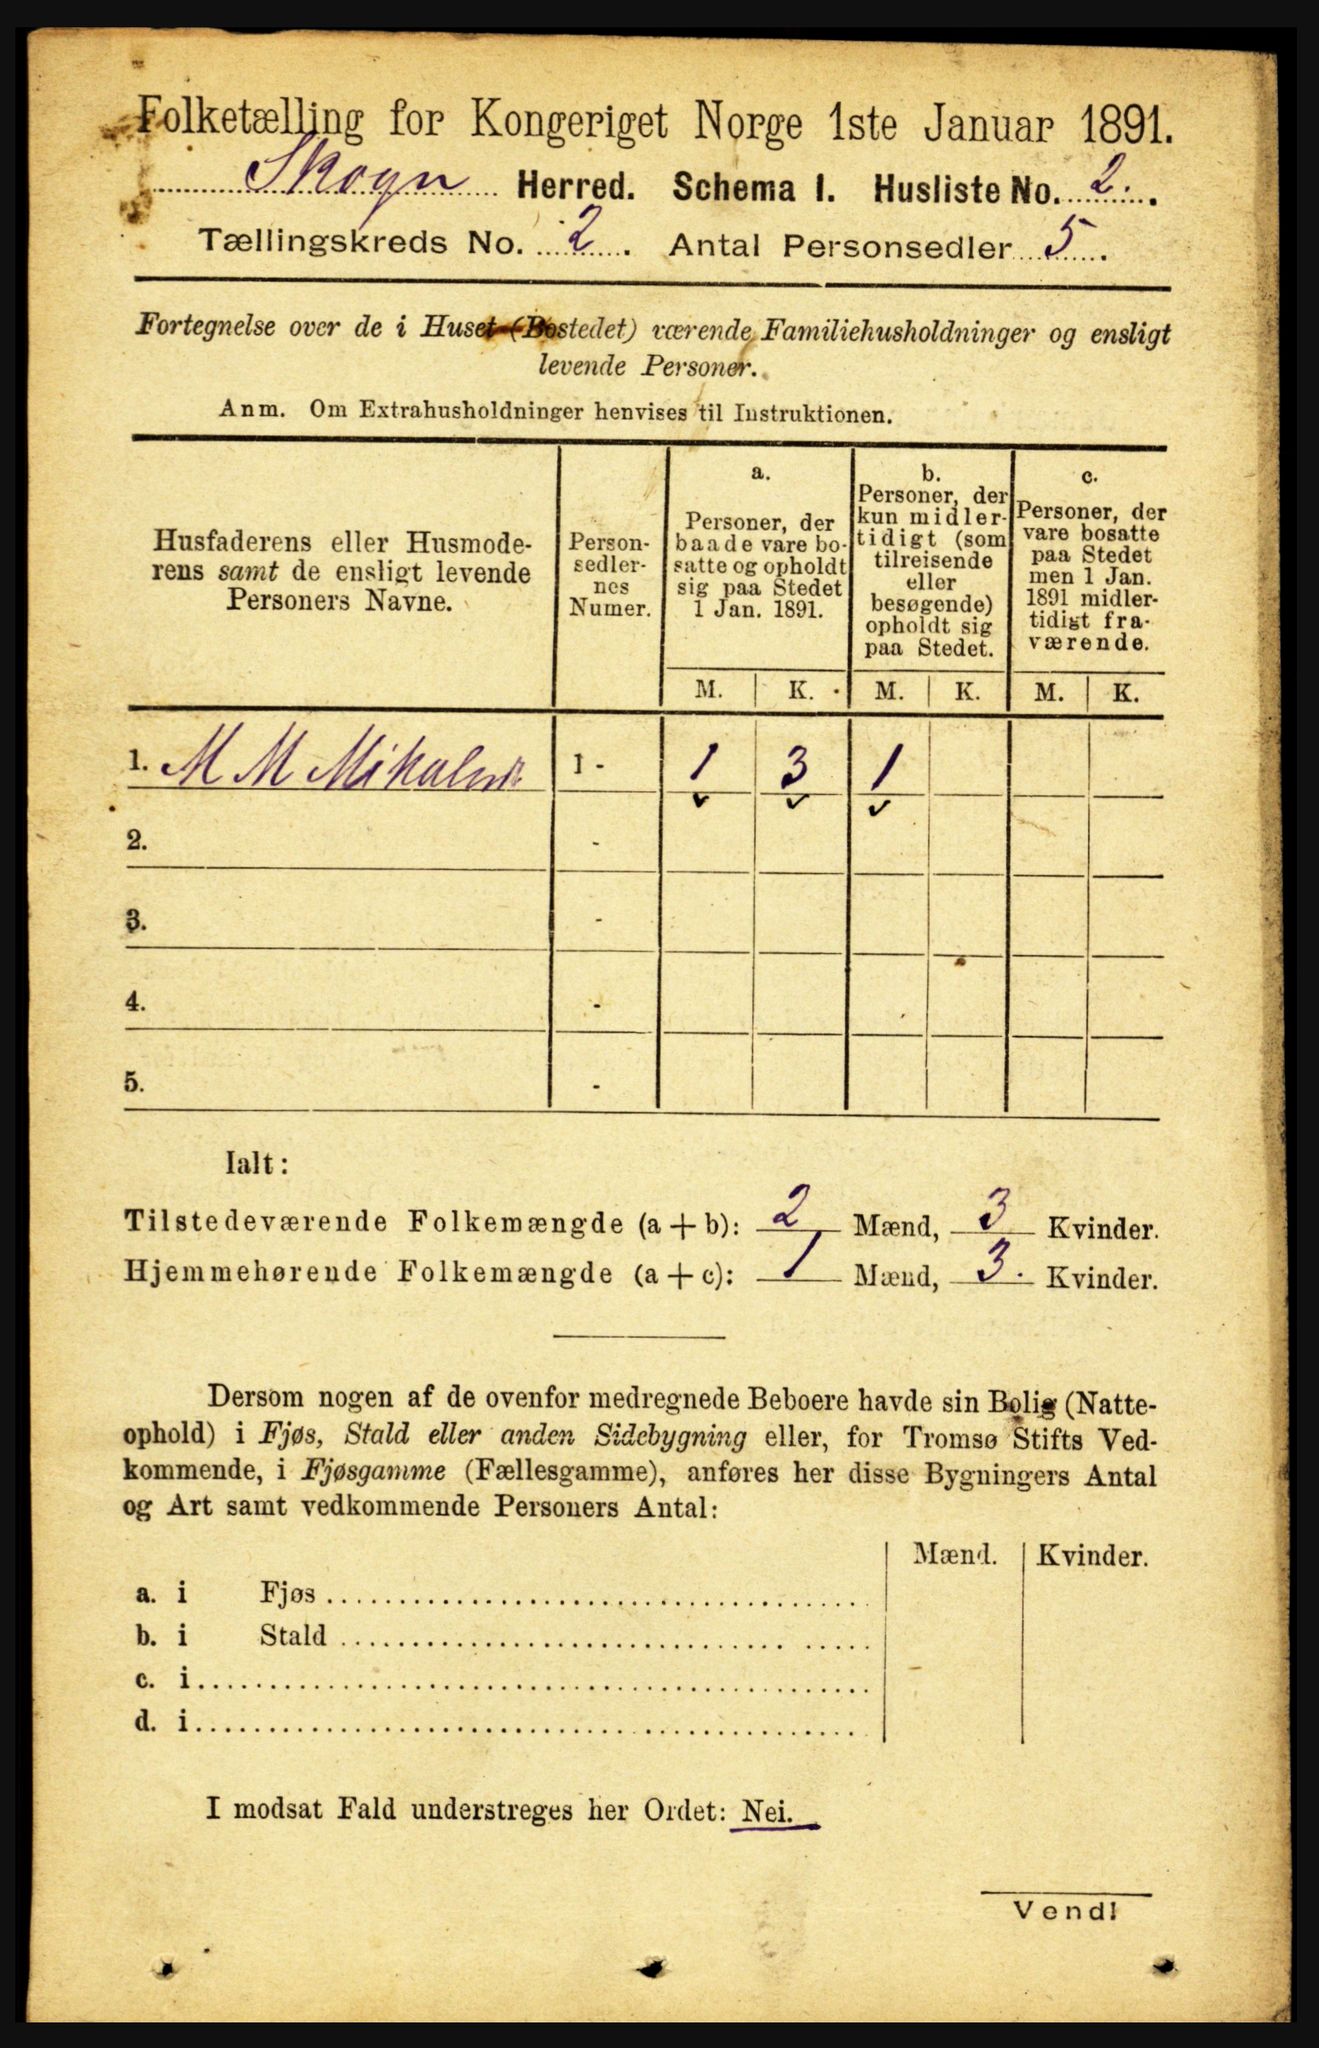 Folketælling for Kongeriget Norge 1ste Januar 1891.
Skogn Herred. Schema I. Husliste No. 2.
Tællingskreds No. 2. Antal Personsedler 5.
Fortegnelse over de i Huset (Bostedet) værende Familiehusholdninger og ensligt
levende Personer.
Anm. Om Extrahusholdninger henvises til Instruktionen.
Husfaderens eller Husmode-
rens samt de ensligt levende
Personers Navne.
Person-
sedler-
nes
Numer.
a.
Personer, der
baade vare bo-
satte og opholdt
sig paa Stedet
1 Jan. 1891.
b.
Personer, der
kun midler-
tidigt (som
tilreisende
eller
besøgende)
opholdt sig
paa Stedet.
c.
Personer, der
vare bosatte
paa Stedet
men 1 Jan.
1891 midler-
tidigt fra-
værende.
M. K. M. K. M. K.
1. M M 1 - 1 3 1
2. -
3. -
4. -
5. -
Ialt:
Tilstedeværende Folkemængde (a + b): 2 Mænd, 3 Kvinder.
Hjemmehørende Folkemængde (a + c): 1 Mænd, 3. Kvinder.
Dersom nogen af de ovenfor medregnede Beboere havde sin Bolig (Natte-
ophold) i Fjøs, Stald eller anden Sidebygning eller, for Tromsø Stifts Ved-
kommende, i Fjøsgamme (Fællesgamme), anføres her disse Bygningers Antal
og Art samt vedkommende Personers Antal:
Mænd. Kvinder.
a. i Fjøs
b. i Stald
c. i
d. i
I modsat Fald understreges her Ordet: Nei.
Vend!